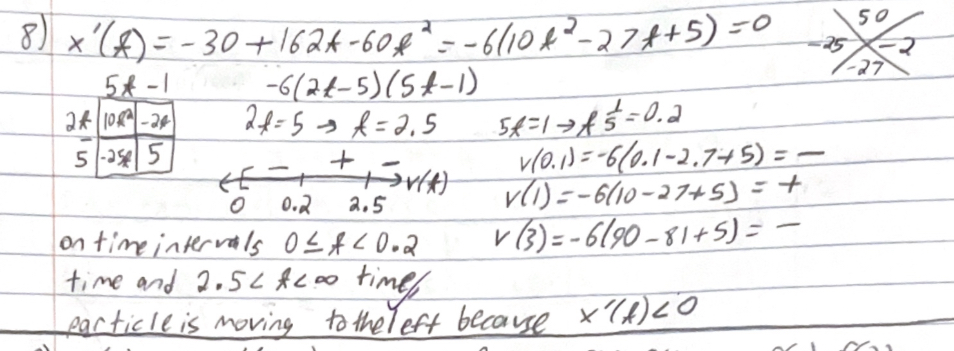 8) x'(t) = -30 + 162t - 60t² = -6(10t² - 27t + 5) = 0
50
-25 -2
-27
5t - 1 -6(2t - 5)(5t - 1)
2t 10t² -2t 2t = 5 → t = 2.5 5t = 1 → t 1/5 = 0.2
5 -25t 5
- + - v(t)
0 0.2 2.5
v(0.1) = -6(0.1 - 2.7 + 5) = -
v(1) = -6(10 - 27 + 5) = +
v(3) = -6(90 - 81 + 5) = -
on time intervals 0 ≤ t < 0.2
time and 2.5 < t < ∞ time,
particle is moving to the left because x'(t) < 0